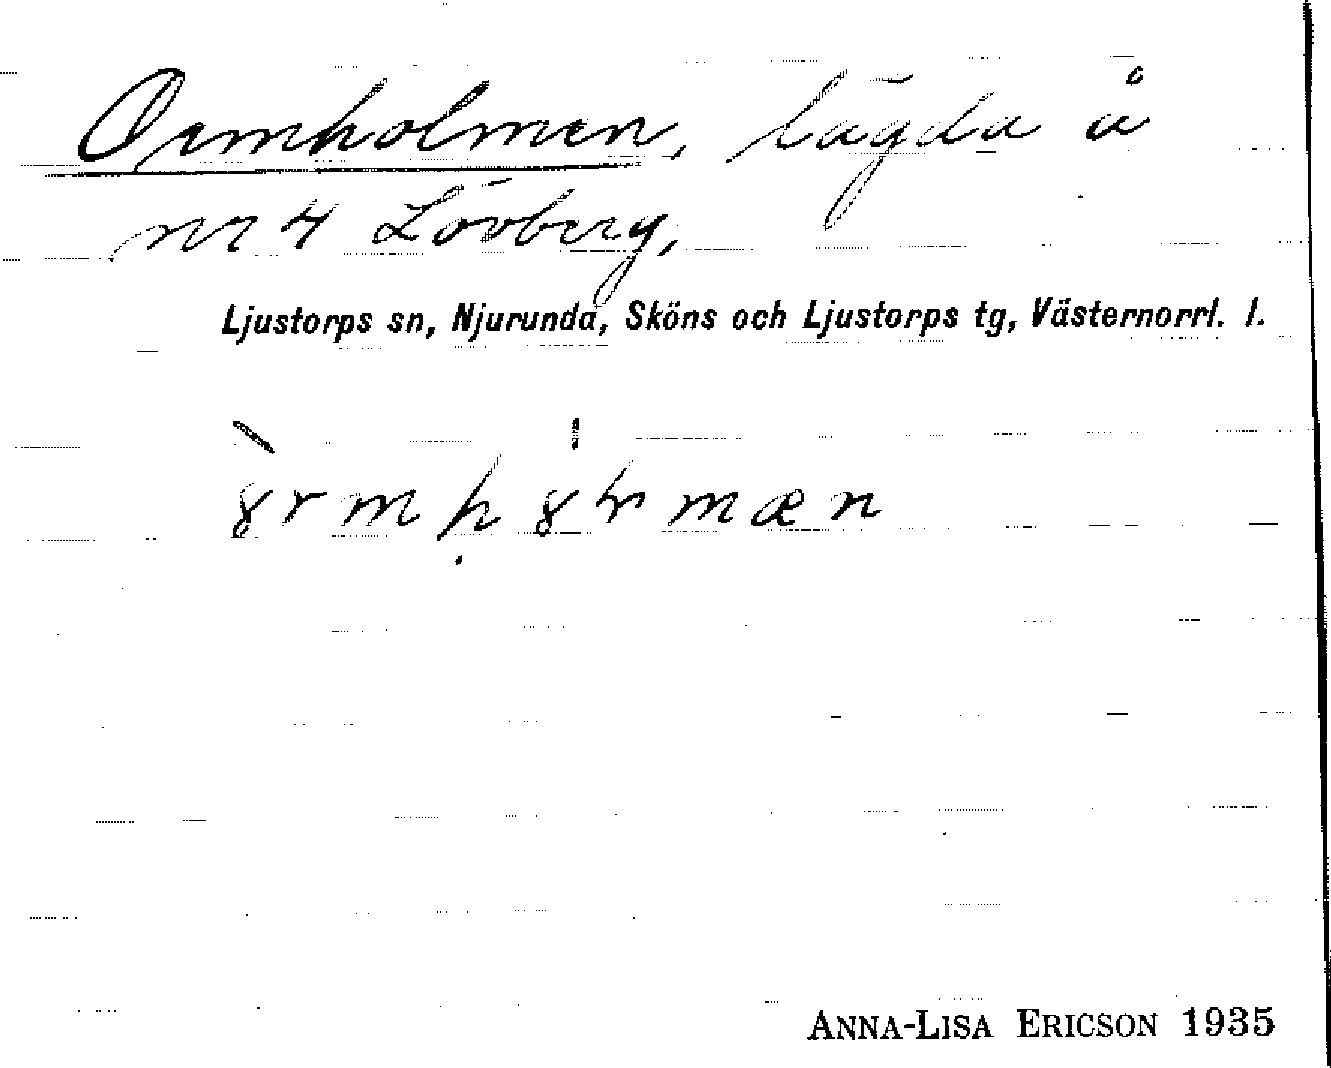 Ormholmen, lägda å
nr 4 Lövberg,
Ljustorps sn, Njurunda, Sköns och Ljustorps tg, Västernorrl. l.
ANNA-LISA ERICSON 1935